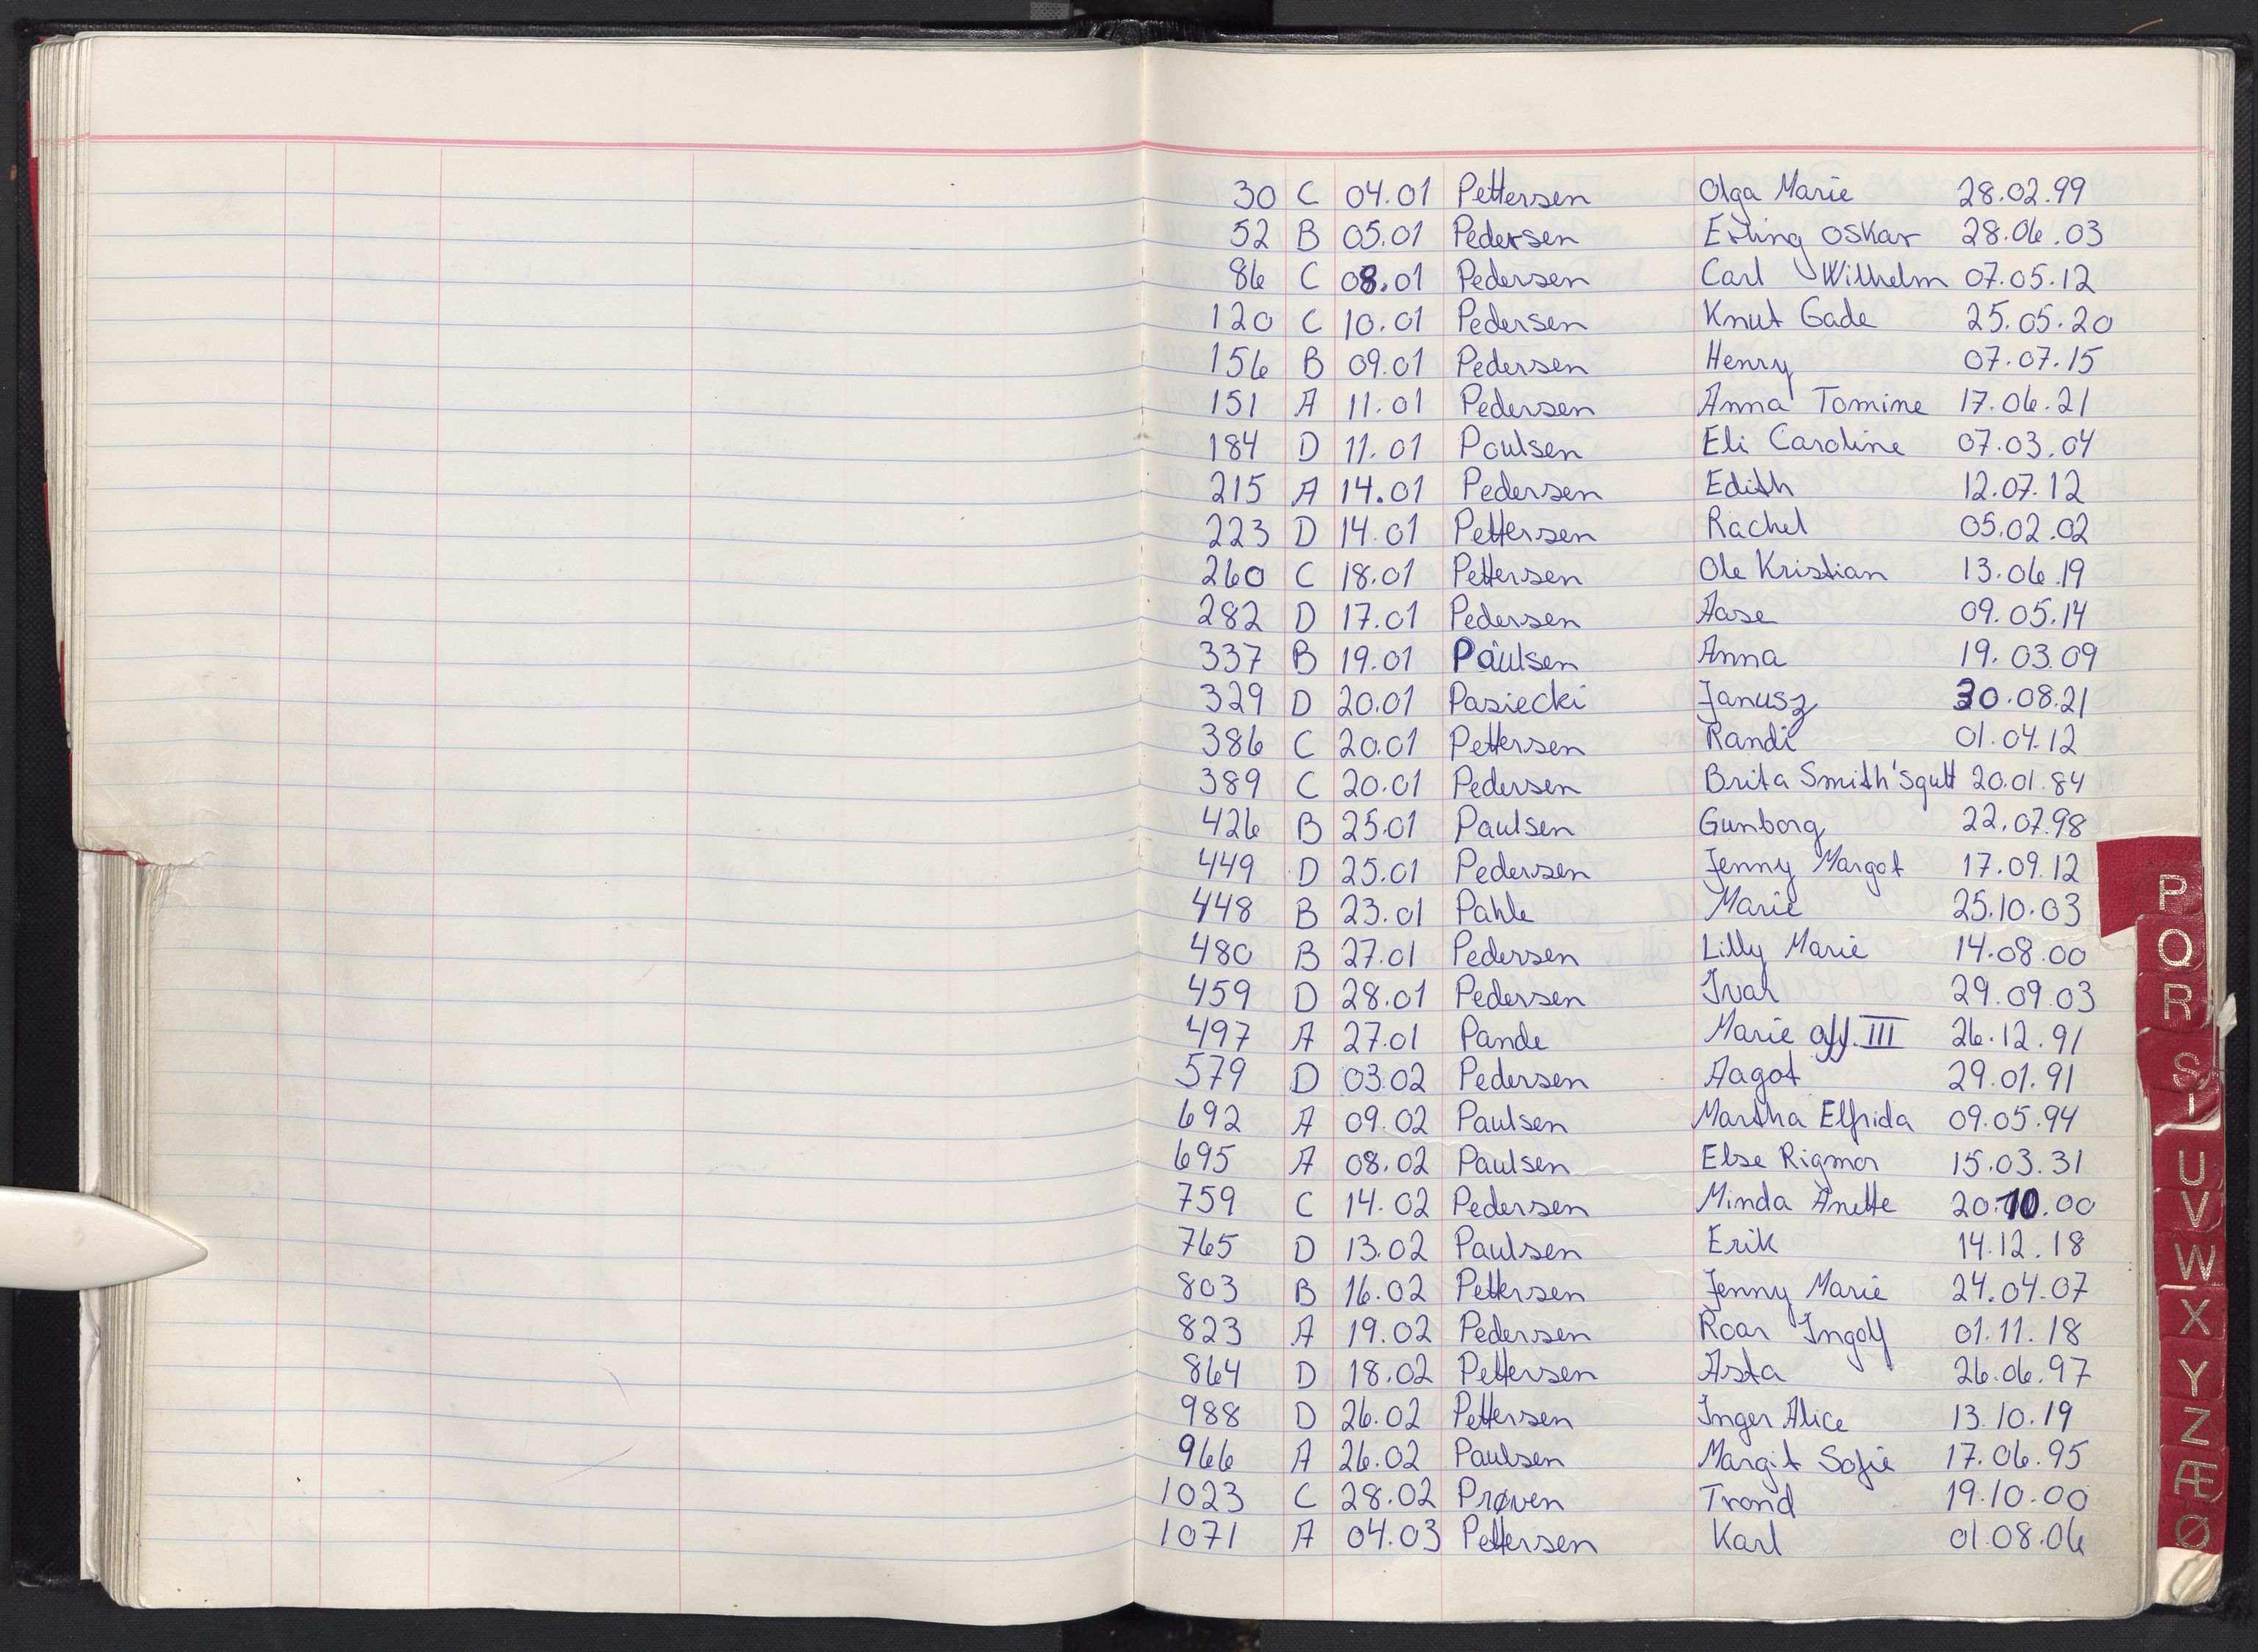 30 C 04.01 Pettersen Olga Marie 28.02.99
52 B 05.01 Pedersen Erling Oskar 28.06.03
86 C 08.01 Pedersen Carl Wilhelm 07.05.12
120 C 10.01 Pedersen Knut Gade 25.05.20
156 B 09.01 Pedersen Henry 07.07.15
151 A 11.01 Pedersen Anna Tomine 17.06.21
184 D 11.01 Poulsen Eli Caroline 07.03.04
215 A 14.01 Pedersen Edith 12.07.12
223 D 14.01 Pettersen Rachel 05.02.02
260 C 18.01 Pettersen Ole Kristian 13.06.19
282 D 17.01 Pedersen Aase 09.05.14
337 B 19.01 Paulsen Anna 19.03.09
329 D 20.01 Pasiecki Janusz 30.08.21
386 C 20.01 Pettersen Randi 01.04.12
389 C 20.01 Pedersen Brita Smith'sgutt 20.01.84
426 B 25.01 Paulsen Gunborg 22.07.98
449 D 25.01 Pedersen Jenny Margot 17.09.12
448 B 23.01 Pahle Marie 25.10.03
480 B 27.01 Pedersen Lilly Marie 14.08.00
459 D 28.01 Pedersen Ivar 29.09.03
497 A 27.01 Pande Marie aff. III 26.12.91
579 D 03.02 Pedersen Aagot 29.01.91
692 A 09.02 Paulsen Martha Elfrida 09.05.94
695 A 08.02 Paulsen Else Rigmor 15.03.31
759 C 14.02 Pedersen Minda Anette 20.10.00
765 D 13.02 Paulsen Erik 14.12.18
803 B 16.02 Pettersen Jenny Marie 24.04.07
823 A 19.02 Pedersen Roar Ingolf 01.11.18
864 D 18.02 Pettersen Asta 26.06.97
988 D 26.02 Pettersen Inger Alice 13.10.19
966 A 26.02 Paulsen Margit Sofie 17.06.95
1023 C 28.02 Prøven Trond 19.10.00
1071 A 04.03 Pettersen Karl 01.08.06
P
Q
R
S
U
V
W
X
Y
Z
Æ
Ø